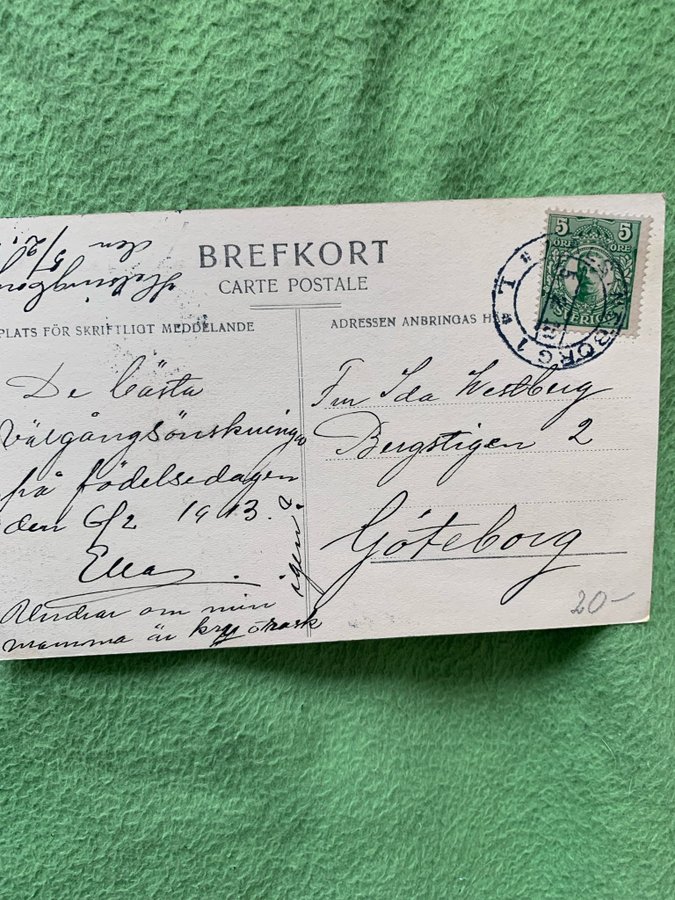 BREFKORT
CARTE POSTALE
PLATS FÖR SKRIFTLIGT MEDDELANDE
ADRESSEN ANBRINGAS H
den
5/2
De bästa
välgångsönskninga
på födelsedagen
den 6/2 1913.
Ella
Undrar om min
mamma är kry o rask
igen?
Fru Ida Westberg
Bergstigen 2
Göteborg
5 5
ÖRE ÖRE
SVERIGE
BORG 1
20-